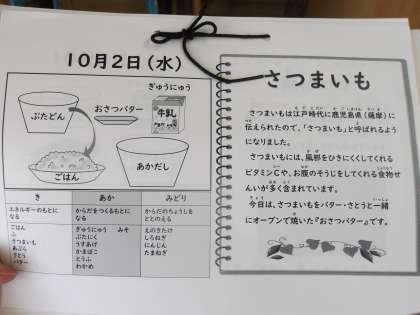 10月2日(水)
ぎゅうにゅう
ぶたどん
おさつバター
牛乳
ごはん
あかだし
き
あか
みどり
エネルギーのもとに
なる
からだをつくるもとに
なる
からだのちょうしを
ととのえる
ごはん
ふ
さつまいも
あぶら
さとう
バター
ぎゅうにゅう みそ
ぶたにく
うすあげ
かまぼこ
とうふ
わかめ
えのきたけ
しろねぎ
にんじん
たまねぎ
さつまいも
さつまいもは江戸時代に鹿児島県(薩摩)に
伝えられたので、「さつまいも」と呼ばれるよう
になりました。
さつまいもには、風邪をひきにくくしてくれる
ビタミンCや、お腹のそうじをしてくれる食物せ
んいが多く含まれています。
今日は、さつまいもをバター・さとうと一緒
にオーブンで焼いた『おさつバター』です。